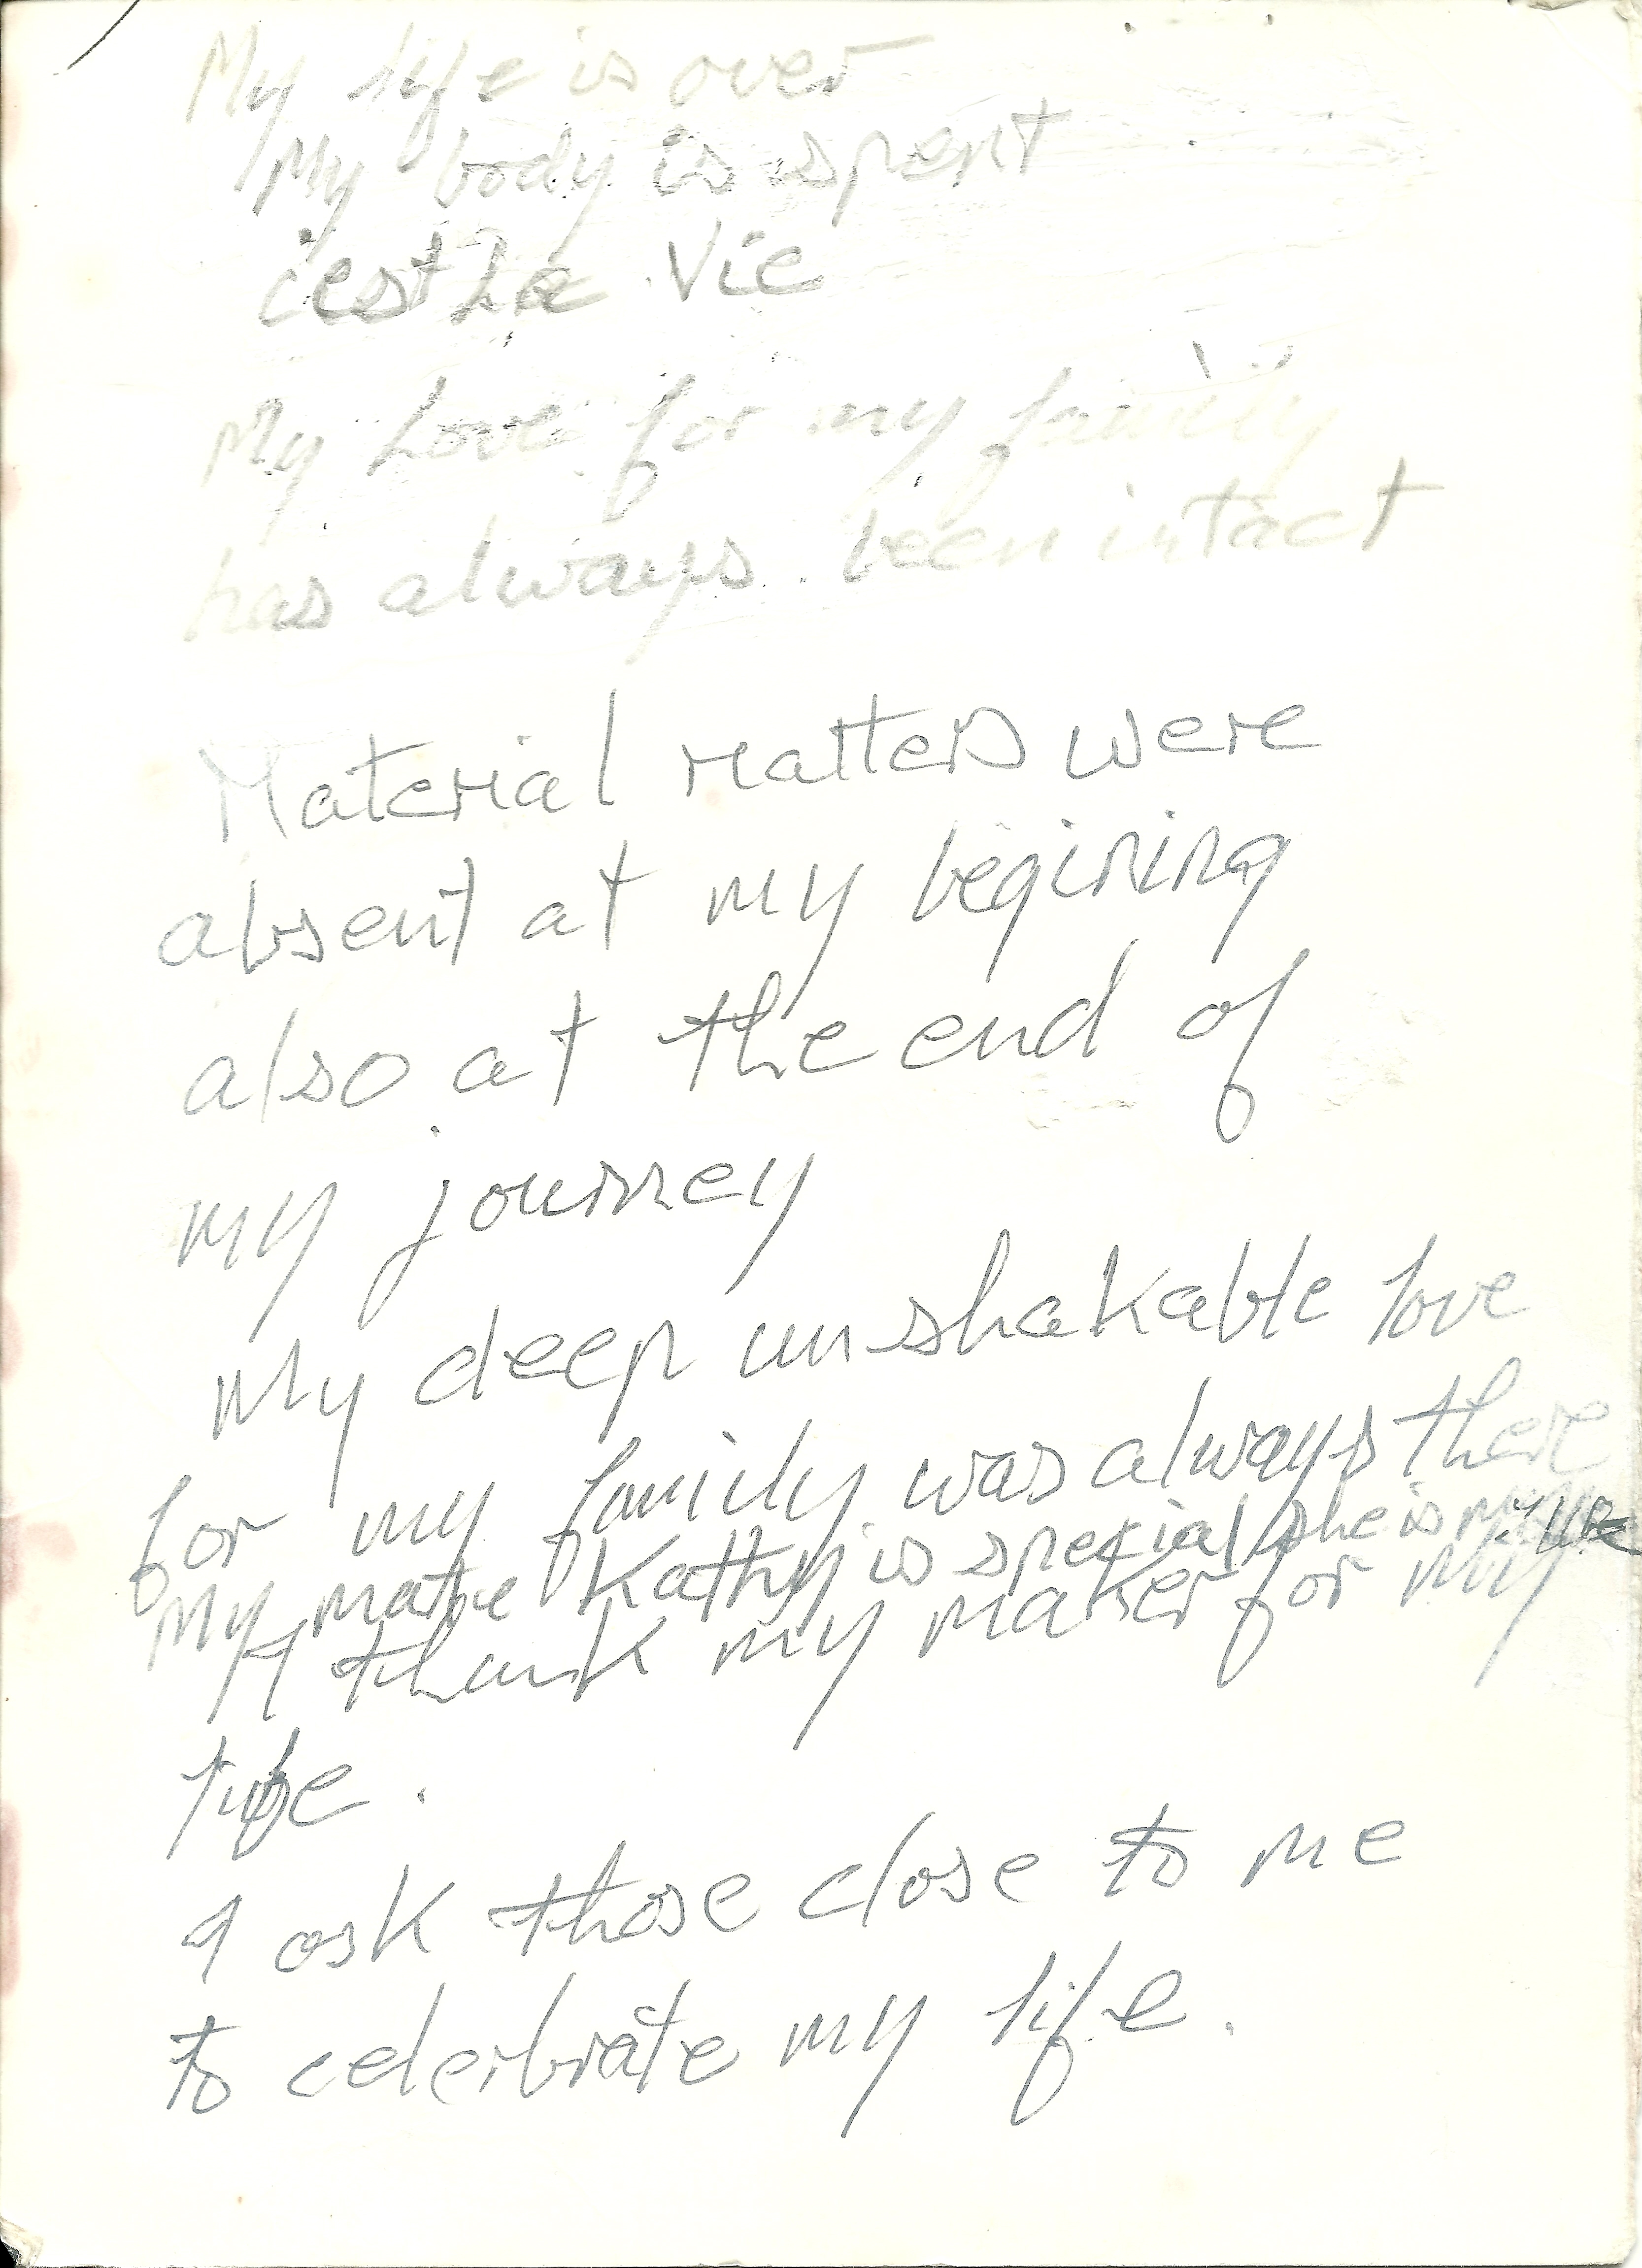 My life is over
My body is spent
c'est La Vie
My Love for my family
has always been intact
Material matters were
absent at my begining
also at the end of
my journey
My deep unshakable love
for my family was always there
My mate Kathy is special she is my
I thank my maker for my
life.
I ask those close to me
to celerbrate my life.